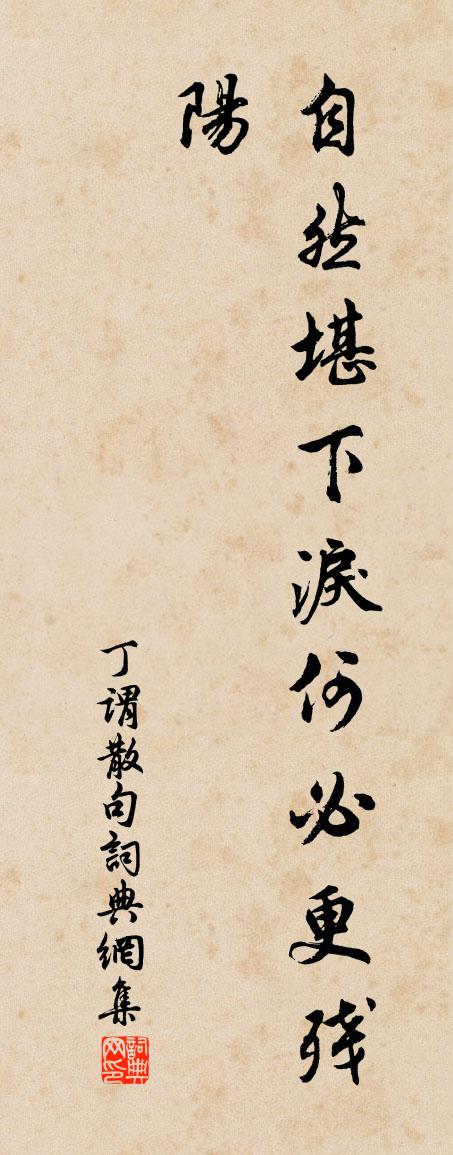 自然堪下淚何必更残
陽
丁謂散句詞典網集
詞典网印